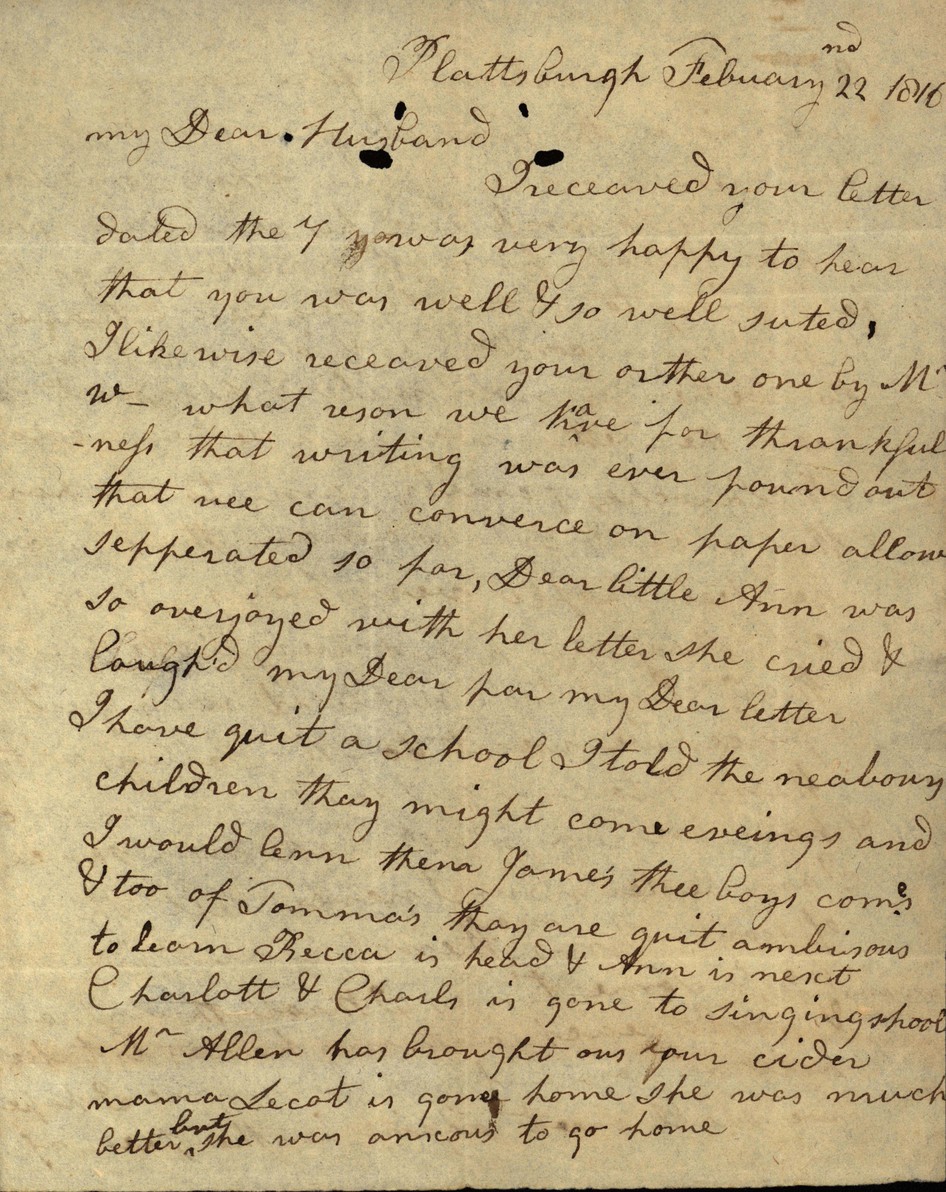 Plattsburgh Febuary 22nd 1816
my Dear Husband
I receaved your letter
dated the 7 was very happy to hear
that you was well & so well suted,
I likewise receaved your orther one by Mr
W– what reson we have for thrankful
-ness that writing was ever found out
that wee can converce on paper allow
sepperated so far, Dear little Ann was
so overjoyed with her letter she cried &
laugh'd my Dear par my Dear letter
I have quit a school I told the neabours
children thay might come eveings and
I would lern them James thee boys comes
& too of Tomma's thay are quit ambisous
to learn Becca is head & Ann is next
Charlott & Charls is gone to singingshool
Mr Allen has brought ous four cider
mama Lecot is gone home she was much
better but she was anxcous to go home